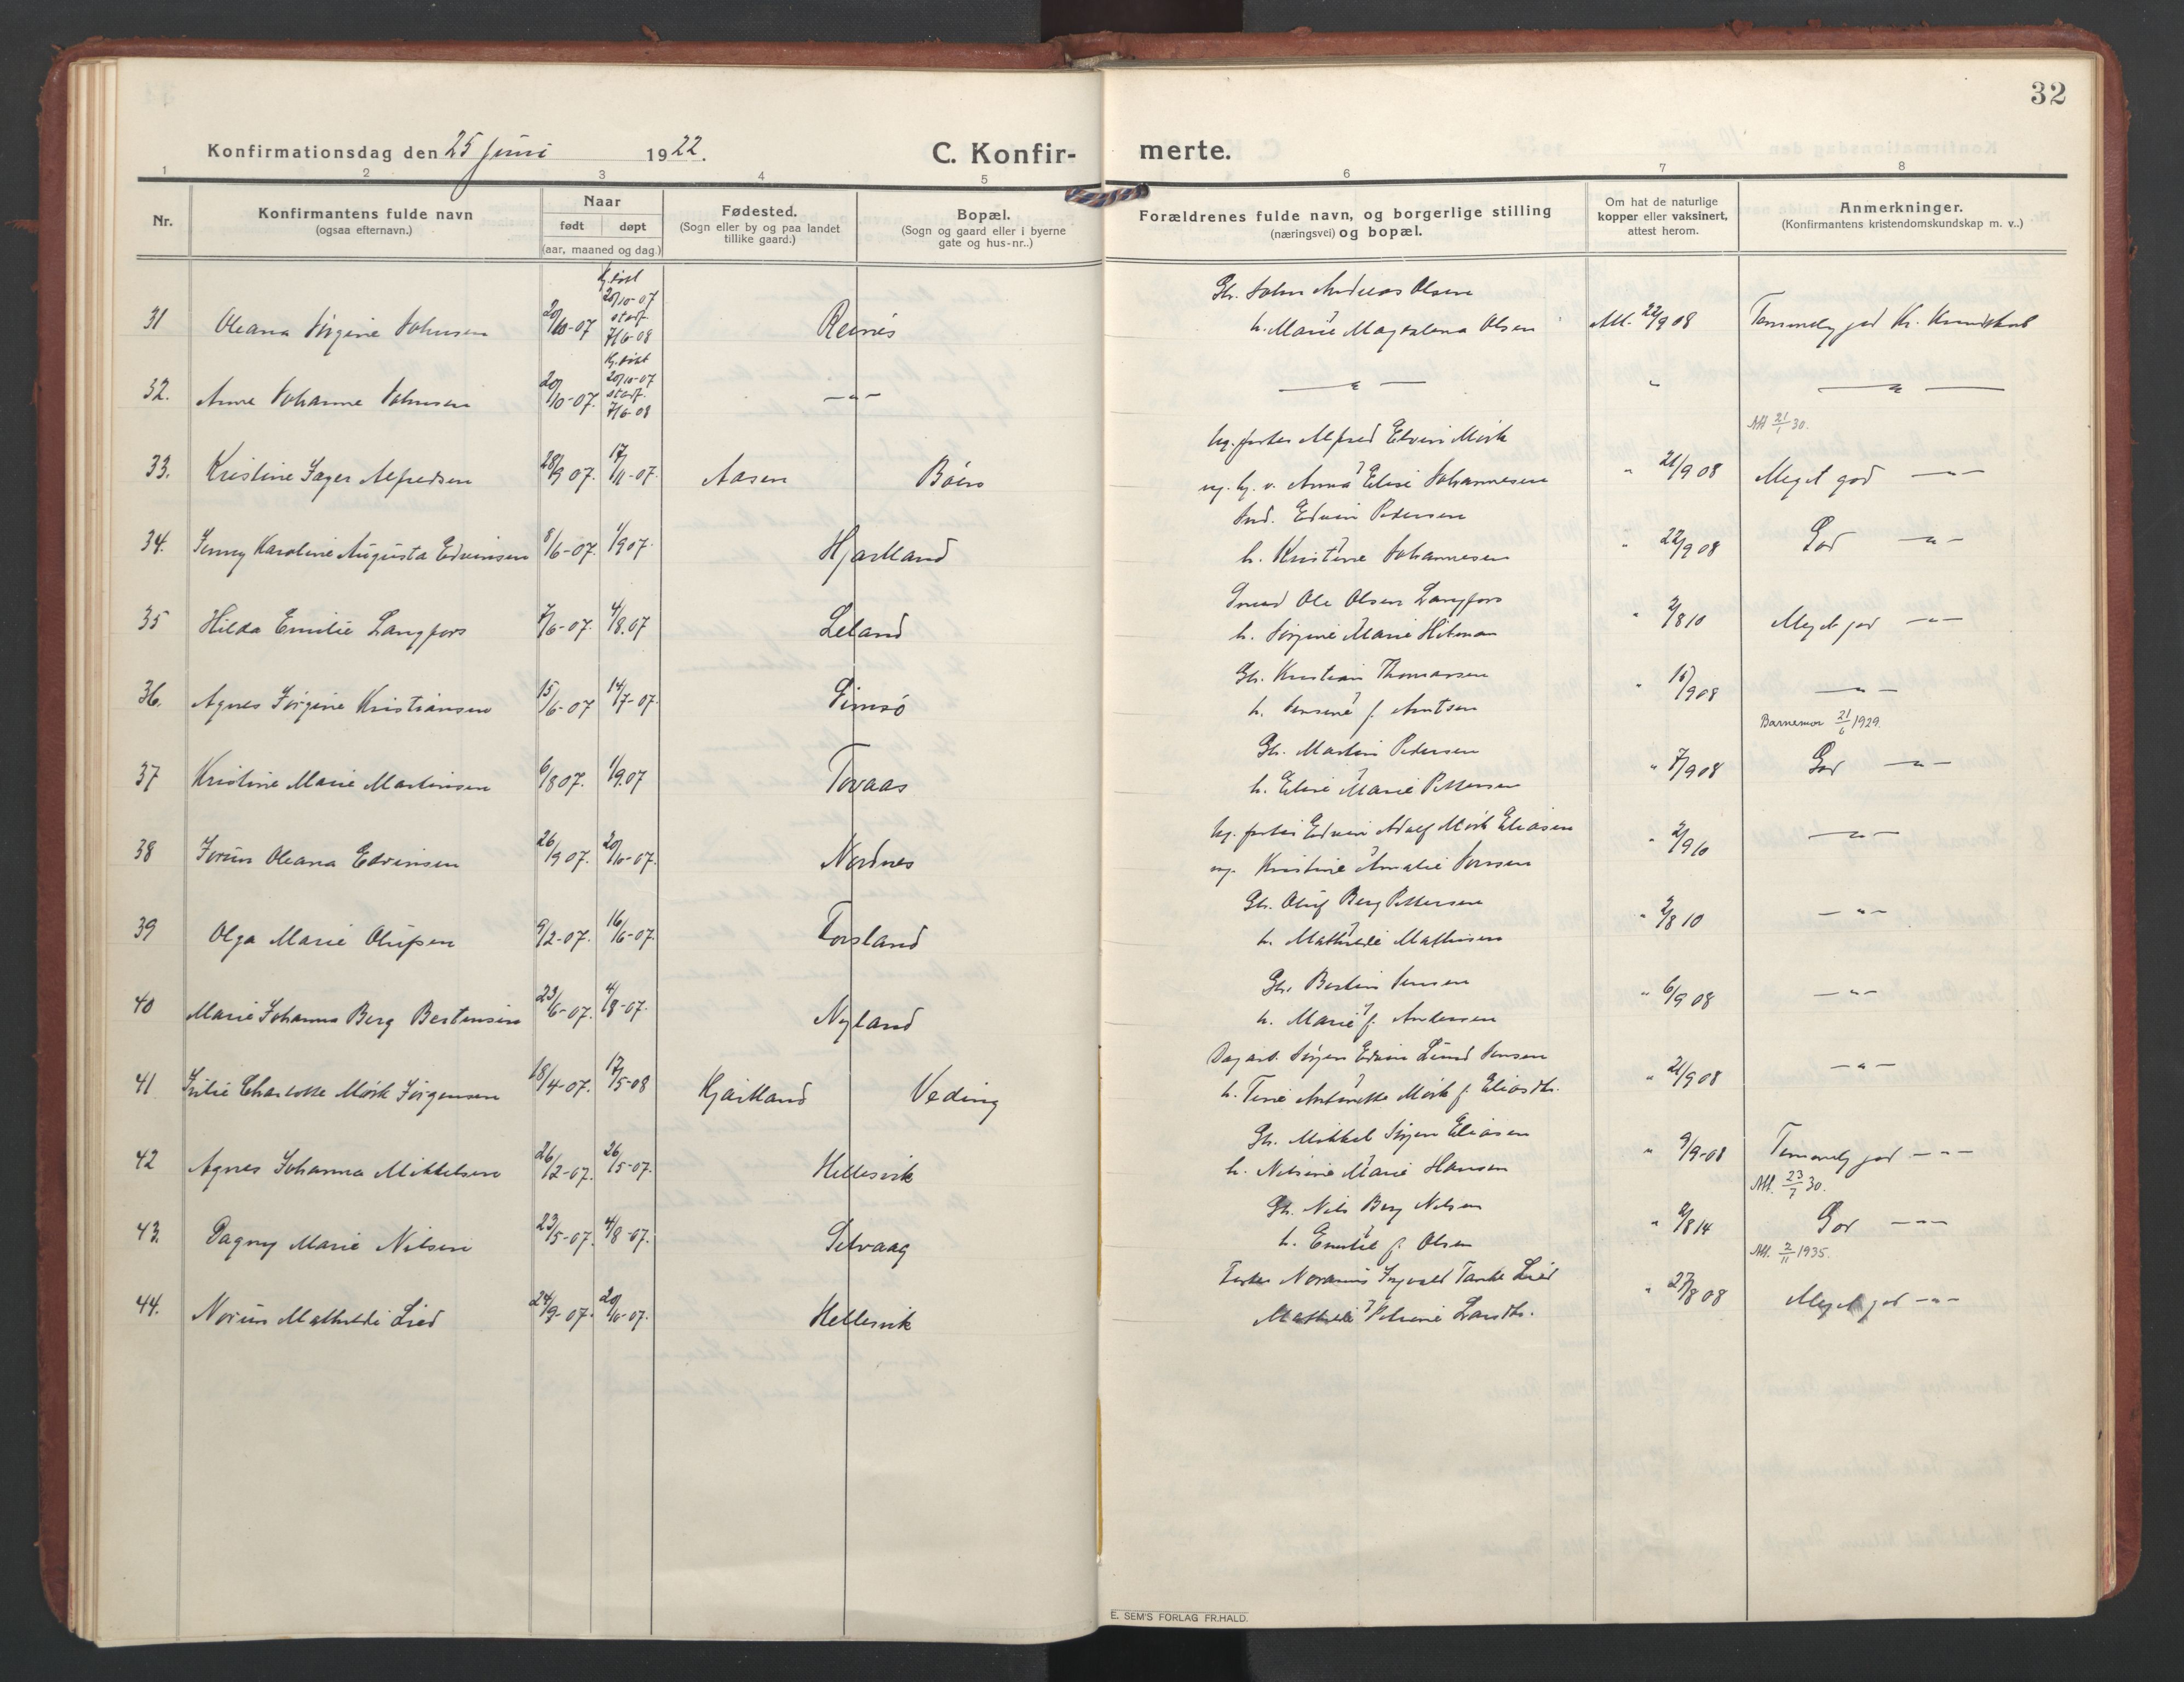 32
Konfirmationsdag den 25 juni 1922.
C. Konfirmerte.
1 2 3 4 5 6 7 8
Nr.
Konfirmantens fulde navn
(ogsaa efternavn.)
Naar
født døpt
(aar, maaned og dag.)
Fødested.
(Sogn eller by og paa landet
tillike gaard.)
Bopæl.
(Sogn og gaard eller i byerne
gate og hus-nr..)
Forældrenes fulde navn, og borgerlige stilling
(næringsvei) og bopæl.
Om hat de naturlige
kopper eller vaksinert,
attest herom.
Anmerkninger.
(Konfirmantens kristendomskundskap m. v..)
Hj.døbt
20/10-07
stadf.
7/6-08
Gb. Johan Andreas Olsen
31 Oleana Jørgine Johnsen 20/10-07 Reinés h. Marie Magdalena Olsen Att. 22/9 08 Temmelig god Kr. Kundskab
Hj. døbt
20/10-07
stadf.
7/6-08
32. Anne Johanne Johnsen 20/10-07. —"— —"— " —"—
Att 21/1 30.
Ug. fisker Alfred Edvin Mørk
33. Kristine Jager Alfredsen 28/9 07. 17/11-07. Aasen Båen ug. hj. v. Anna Elise Johannesen " 21/9 08 Meget god —"—
Ind. Edvin Pedersen
34. Jenny Karoline Augusta Edvinsen 8/6-07. 1/9 07. Hjartland h. Kristine Johannesen " 22/9 08 God —"—
Smed Ole Olsen Langfors
35 Hilda Emilie Langfors 7/6-07. 4/8.07 Leland h. Jørgine Marie Hitman " 2/8 10 Meget god —"—
Gb. Kristian Thomassen
36. Agnes Jørgine Kristiansen 15/6-07 14/7-07. Simsø h. Jensine f. Arntsen " 15/9 08 —"—
Barnemor 21/6 1929.
Gb. Martin Pedersen
37 Kristine Marie Martinsen 6/8 07. 1/9.07 Tovaas h. Elise Marie Pettersen " 7/9 08 God —"—
Ug. fisker Edvin Adolf Mørk Eliasen
38 Jorun Oleana Edvinsen 26/9 07. 20/10-07. Nordnes ug. Kristine Amalie Jonsen " 2/9 10 —"—
Gb. Oluf Berg Pettersen
39 Olga Marie Olufsen 9/2-07. 16/6-07. Forsland h. Mathilde Mathisen " 2/8 10 —"—
Gb. Bertin Jensen
40 Marie Johanna Berg Bertinsen 23/6-07. 4/8-07. Nyland h. Marie f. Andersen " 6/9 08 —"—
Dagarb. Jørgen Edvin Lund Jensen
41 Julie Charlotte Mørk Jørgensen 18/4-07. 17/5-08 Hjartland Veding h. Tine Antonette Mørk f. Eliasdtr. " 21/9 08 —"—
Gb. Mikkel Jørgen Eliasen
42 Agnes Johanna Mikkelsen 26/2-07. 26/5-07. Hellesvik h. Nilsine Marie Hansen " 9/9-08 Temmelig god —"—
Att. 23/7 30.
Gb. Nils Berg Nilsen
43. Dagny Marie Nilsen 23/5-07. 4/8-07. Selvaag h. Emilie f. Olsen " 2/8 14 God —"—
Att. 2/11 1935.
Fisker Normius Ingvald Tanke Lied
44. Norun Mathilde Lied 24/9-07. 20/10-07. Hellesvik Mathilde Petrine Larsdtr. " 27/8 08 Meget god —"—
E. SEM'S FORLAG FR.HALD.